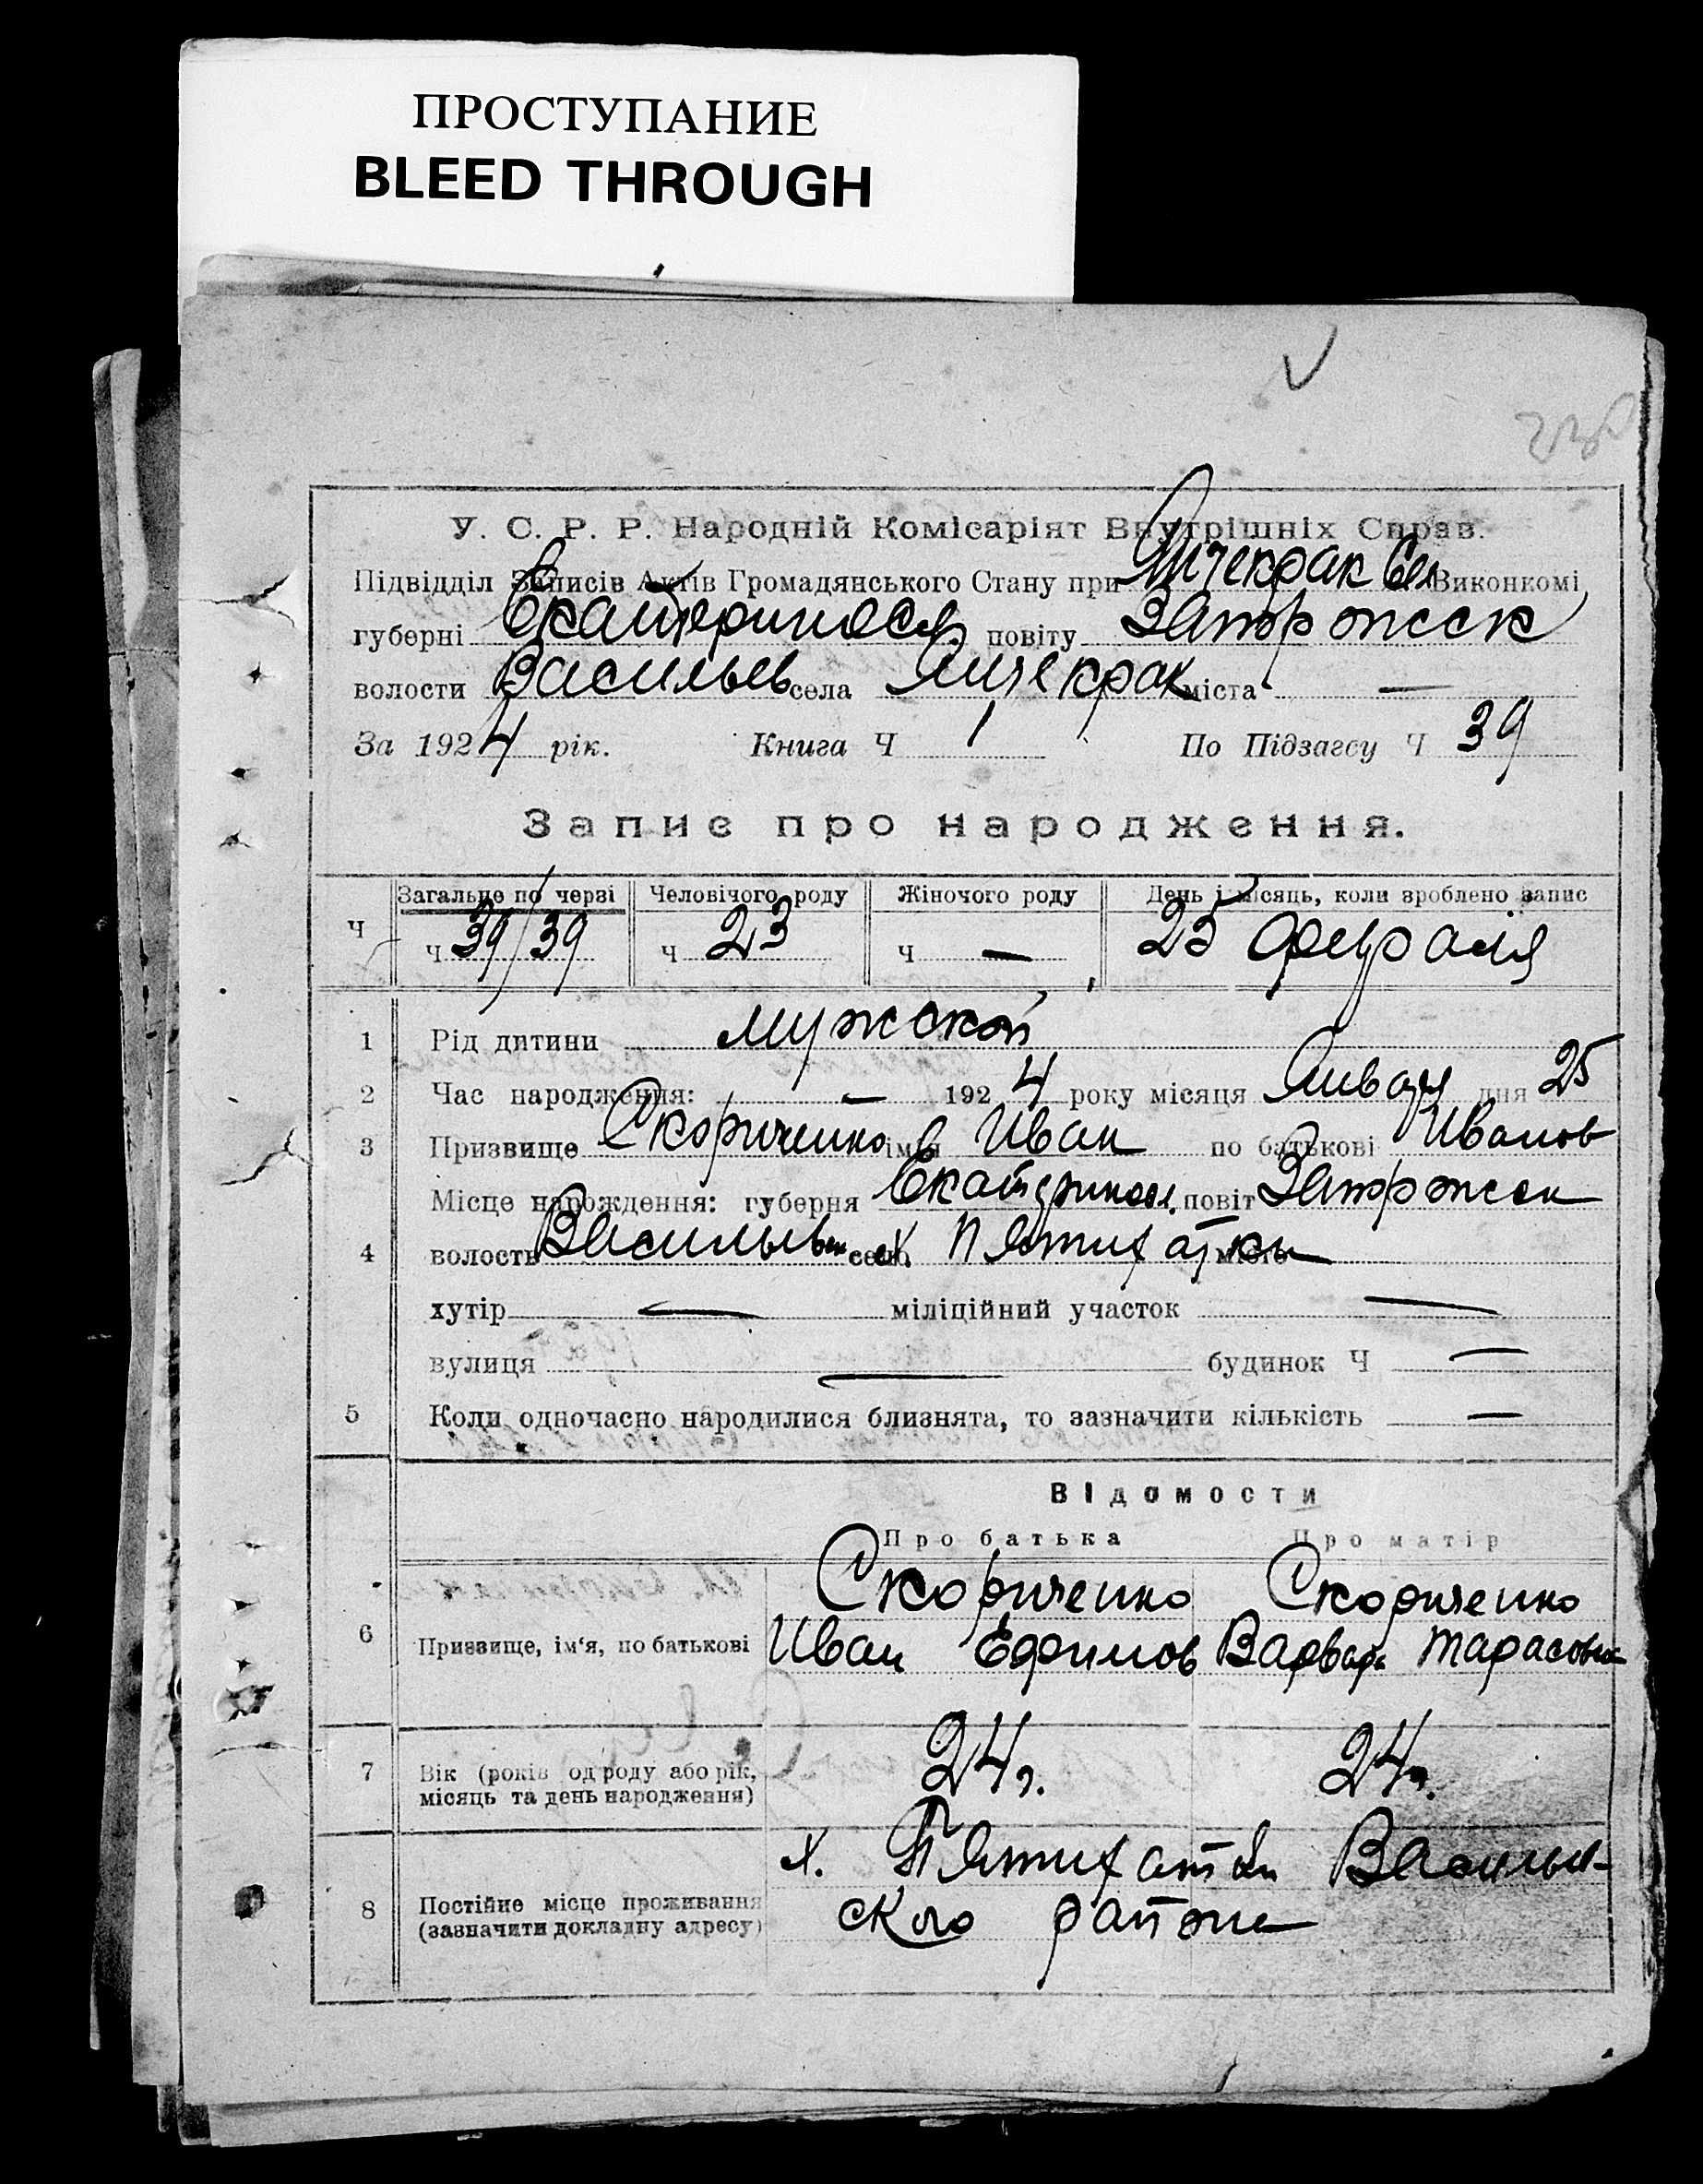 ПРОСТУПАНИЕ
BLEED THROUGH
У. С. Р. Р. Народній Комісаріят Внутрішніх Справ.
Підвідділ Записів Актів Громадянського Стану при Янчекрак Сел Виконкомі
губерні Екатеринослв. повіту Запорожск
волости Васильев села Янчекрак міста —
За 1924 рік. Книга Ч 1 По Підзагсу Ч 39
Запис про народження.
Загальне по черзі Человічого роду Жіночого роду День і місяць, коли зроблено запис
Ч Ч 39/39 Ч 23 Ч — 25 февраля
1 Рід дитини мужской
2 Час народження: — 1924 року місяця Января дня 25
3 Призвище Скориченко імя Иван по батькові Иванов
Місце нарождення: губерня Екатериносл. повіт Запорожск
4 волость Васильевск село х. Пятихатки місто
хутір — міліційний участок —
вулиця — будинок Ч —
5 Коли одночасно народилися близнята, то зазначити кількість —
Відомости
Про батька Про матір
Скориченко Скориченко
6 Призвище, ім'я, по батькові Иван Ефимов Варвара Тарасовна
7 Вік (років од роду або рік, 24 г. 24 г.
місяць та день народження)
х. Пятихатки Васильев-
8 Постійне місце проживання ского района
(зазначити докладну адресу)